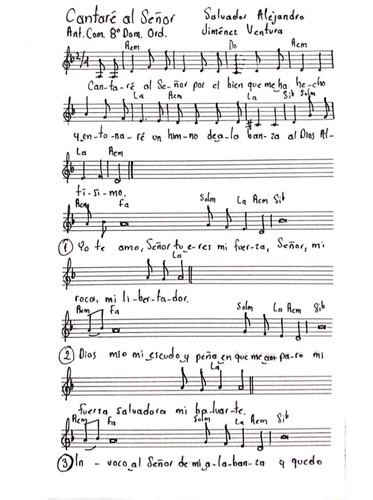 Cantaré al Señor Salvador Alejandro
Ant. Com. 8º Dom. Ord. Jiménez Ventura
Rem Do Rem
2/4
Can-ta-ré al Se-ñor por el bien que me ha he-cho
La Rem La Sib Solm
y en-to-na-ré un him-no de a-la ban-za al Dios Al-
La Rem
tí-si-mo.
Rem Fa Solm La Rem Sib
1 Yo te amo, Señor tu e-res mi fuer-za, Señor, mi
La
roca, mi li-ber-ta-dor.
Rem Fa Solm La Rem Sib
2 Dios mío mi escudo y peña en que me am-pa-ro mi
La
fuerza salvadora mi ba-luar-te.
Rem Fa Solm La Rem Sib
3 In - voco al Señor de mi a-la-ban-za y quedo